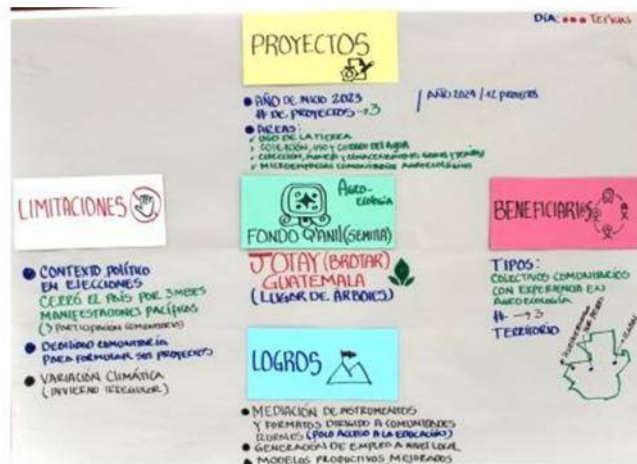 DÍA: ●●●
PROYECTOS
● AÑO DE INICIO 2023
# DE PROYECTOS → 3
● AREAS:
✓ USO DE LA TIERRA
✓ USO Y CUIDADO DEL AGUA
✓ MICROEMPRESAS COMUNITARIAS AGROECOLÓGICAS
AÑO 2024 / 12 PROYECTOS
LIMITACIONES
● CONTEXTO POLÍTICO
EN ELECCIONES
CERRÓ EL PAÍS POR 3 MESES
MANIFESTACIONES PACÍFICAS
● DEBILIDAD COMUNITARIA
PARA FORMULAR SUS PROYECTOS
● VARIACIÓN CLIMÁTICA
(INVIERNO IRREGULAR)
AGRO-
ECOLOGÍA
FONDO Q'ANIL (SEMILLA)
JOTAY (BROTAR)
GUATEMALA
(LUGAR DE ÁRBOLES)
BENEFICIARIOS
TIPOS:
COLECTIVOS COMUNITARIOS
CON EXPERIENCIA EN
AGROECOLOGÍA
# → 3
TERRITORIO
LOGROS
● MEDIACIÓN DE INSTRUMENTOS
Y FORMATOS DIRIGIDO A COMUNIDADES
(POCO ACCESO A LA EDUCACIÓN)
● GENERACIÓN DE EMPLEO A NIVEL LOCAL
● MODELOS PRODUCTIVOS MEJORADOS